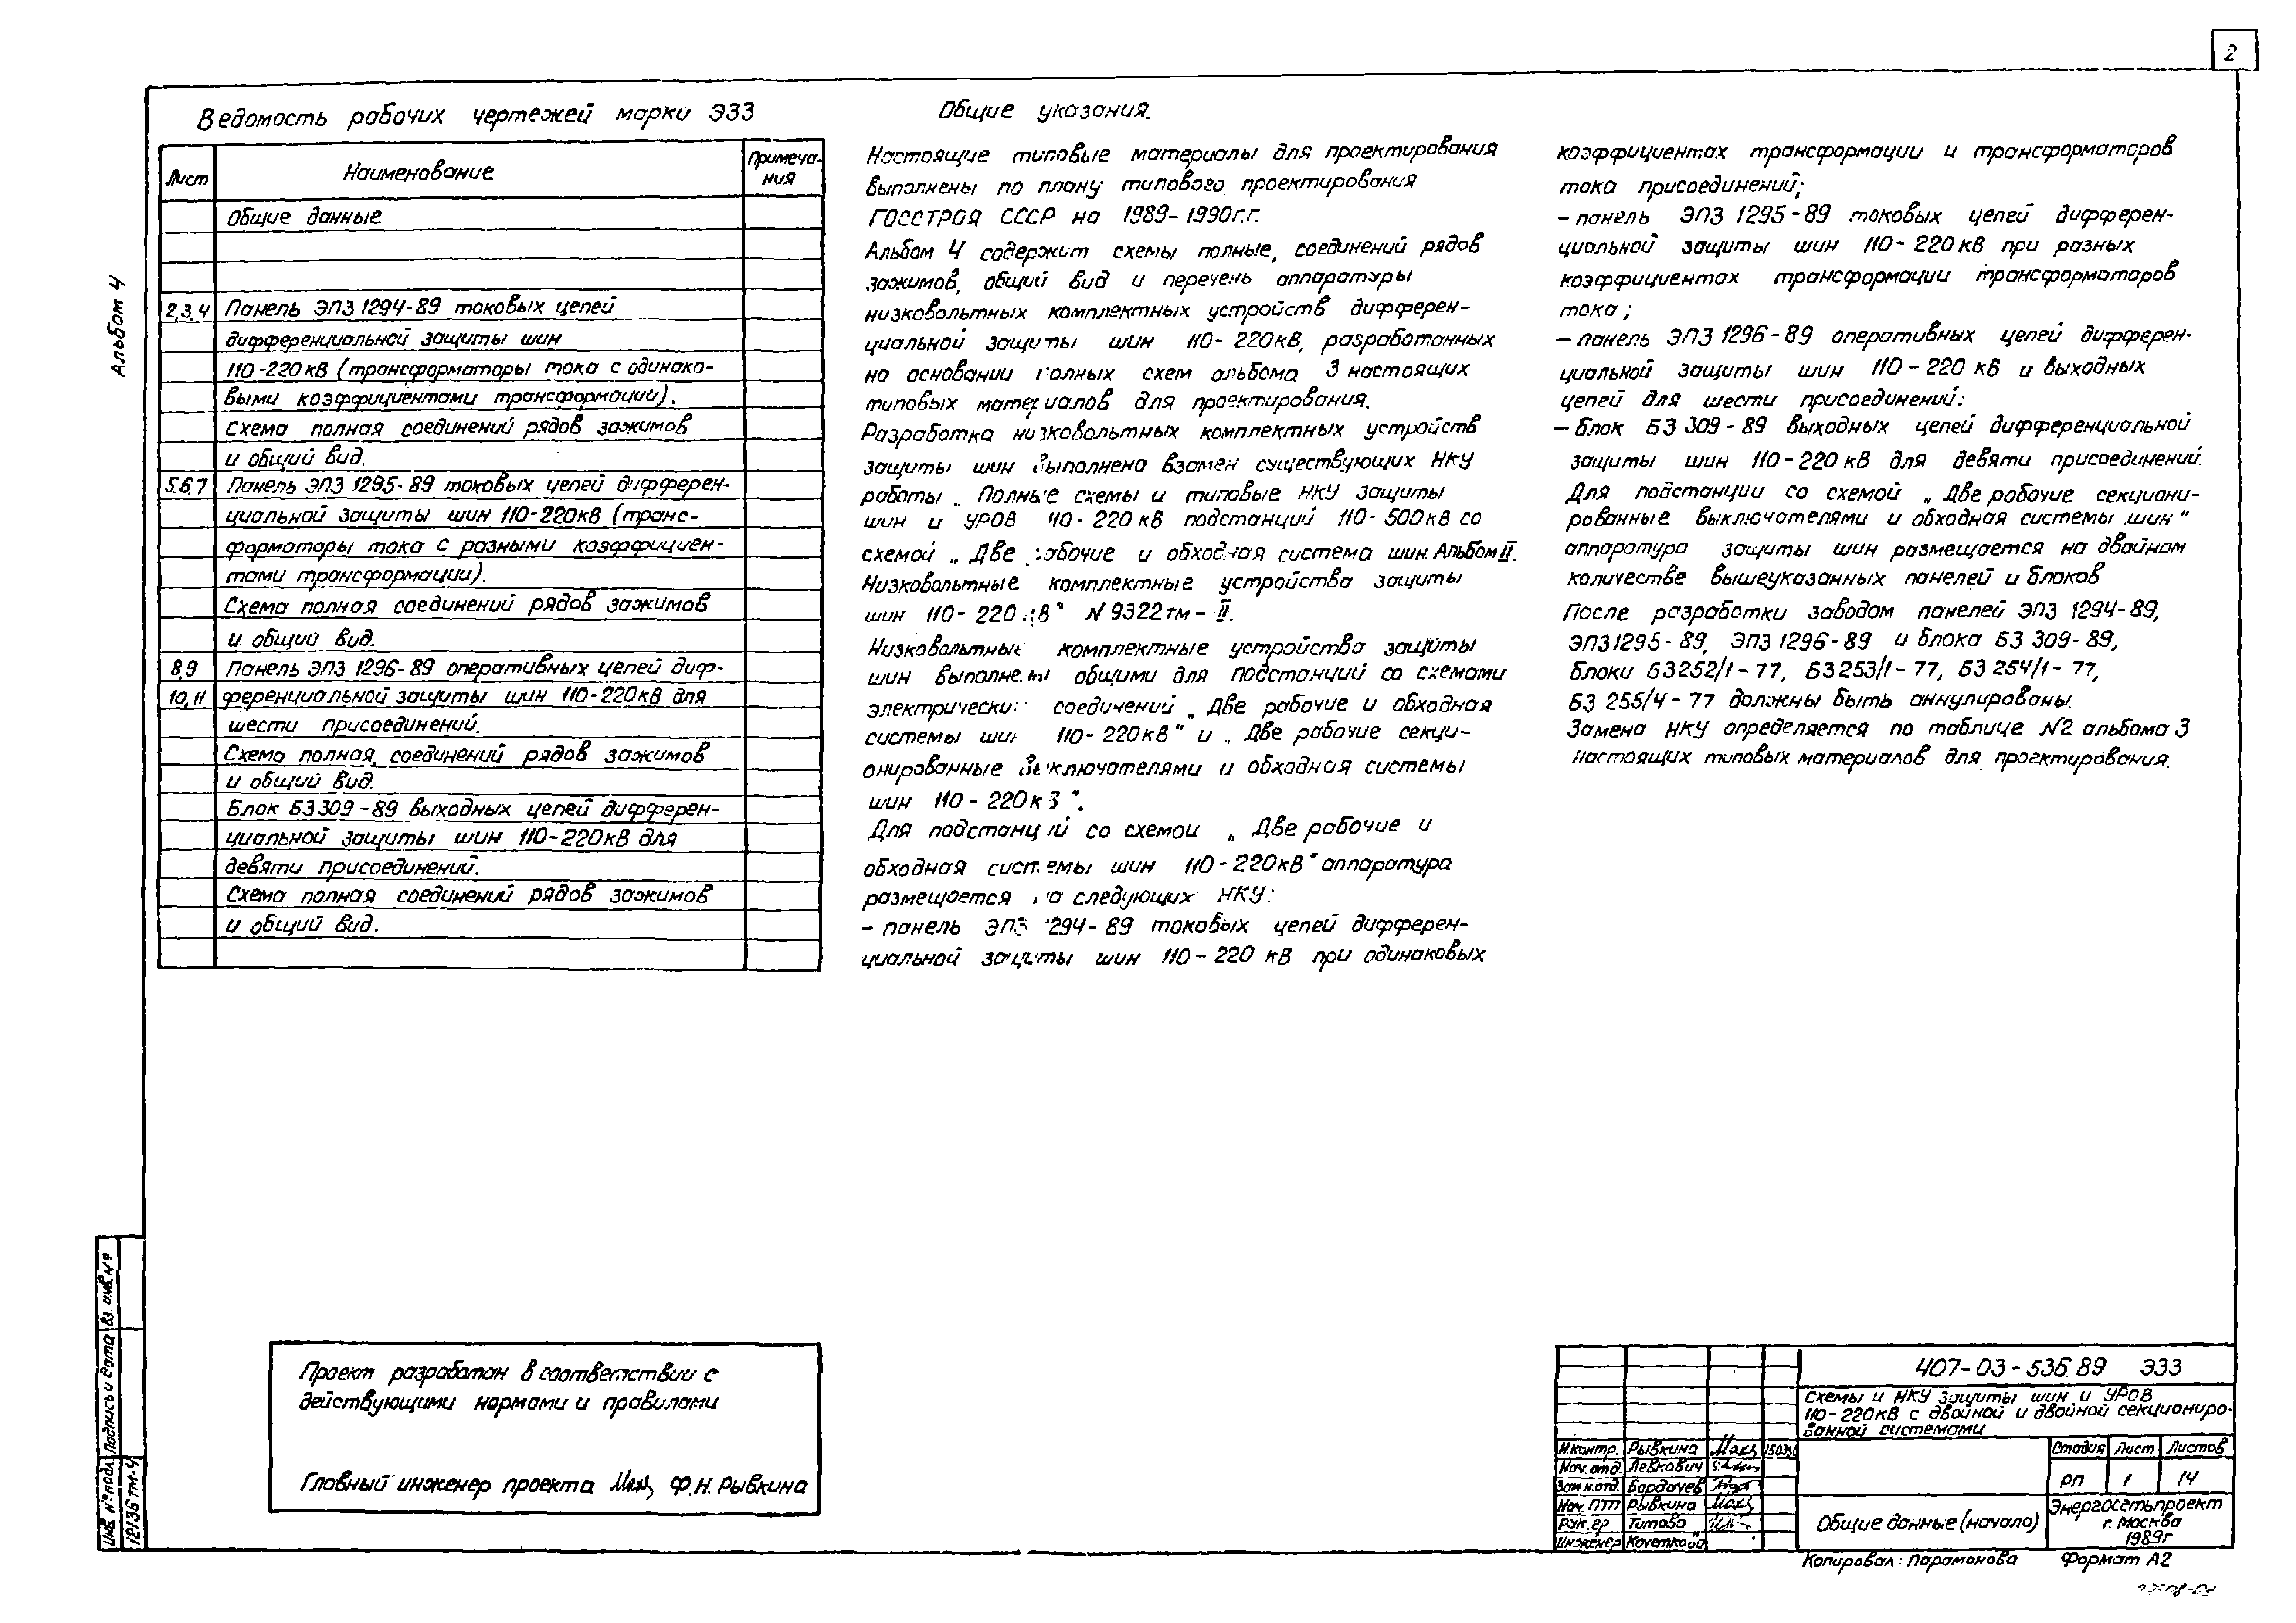 2
Альбом 4
Ведомость рабочих чертежей марки ЭЗЗ
Лист
Наименование
Примеча-
ния
Общие данные
2,3,4 Панель ЭПЗ 1294-89 токовых цепей
дифференциальной защиты шин
110-220кВ (трансформаторы тока с одинако-
выми коэффициентами трансформации).
Схема полная соединений рядов зажимов
и общий вид.
5.6.7 Панель ЭПЗ 1295-89 токовых цепей дифферен-
циальной защиты шин 110-220кВ (транс-
форматоры тока с разными коэффициен-
тами трансформации).
Схема полная соединений рядов зажимов
и общий вид.
8,9 Панель ЭПЗ 1296-89 оперативных цепей диф-
10,11 ференциальной защиты шин 110-220кВ для
шести присоединений.
Схема полная, соединений рядов зажимов
и общий вид.
Блок БЗ309-89 выходных цепей дифферен-
циальной защиты шин 110-220кВ для
девяти присоединений.
Схема полная соединений рядов зажимов
и общий вид.
Общие указания.
Настоящие типовые материалы для проектирования
выполнены по плану типового проектирования
ГОССТРОЯ СССР на 1989-1990г.г.
Альбом 4 содержит схемы полные, соединений рядов
зажимов, общий вид и перечень аппаратуры
низковольтных комплектных устройств дифферен-
циальной защиты шин 110-220кВ, разработанных
на основании полных схем альбома 3 настоящих
типовых материалов для проектирования.
Разработка низковольтных комплектных устройств
защиты шин выполнена взамен существующих НКУ
работы „ Полные схемы и типовые НКУ защиты
шин и УРОВ 110-220 кВ подстанций 110-500кВ со
схемой „ Две рабочие и обходная система шин. Альбом II.
Низковольтные комплектные устройства защиты
шин 110-220 кВ" N 9322тм-II.
Низковольтные комплектные устройства защиты
шин выполнены общими для подстанций со схемами
электрических соединений „ Две рабочие и обходная
системы шин 110-220кВ" и „ Две рабочие секци-
онированные выключателями и обходная системы
шин 110-220кВ".
Для подстанций со схемой „ Две рабочие и
обходная системы шин 110-220кВ" аппаратура
размещается на следующих НКУ:
- панель ЭПЗ 1294-89 токовых цепей дифферен-
циальной защиты шин 110-220 кВ при одинаковых
коэффициентах трансформации и трансформаторов
тока присоединений;
- панель ЭПЗ 1295-89 токовых цепей дифферен-
циальной защиты шин 110-220кВ при разных
коэффициентах трансформации трансформаторов
тока;
- панель ЭПЗ 1296-89 оперативных цепей дифферен-
циальной защиты шин 110-220 кВ и выходных
цепей для шести присоединений;
- блок БЗ 309-89 выходных цепей дифференциальной
защиты шин 110-220 кВ для девяти присоединений.
Для подстанции со схемой „ Две рабочие секциони-
рованные выключателями и обходная системы шин"
аппаратура защиты шин размещается на двойном
количестве вышеуказанных панелей и блоков
После разработки заводом панелей ЭПЗ 1294-89,
ЭПЗ1295-89, ЭПЗ1296-89 и блока БЗ 309-89,
блоки БЗ252/1-77, БЗ253/1-77, БЗ 254/1-77,
БЗ 255/4-77 должны быть аннулированы.
Замена НКУ определяется по таблице N2 альбома 3
настоящих типовых материалов для проектирования.
Проект разработан в соответствии с
действующими нормами и правилами
Главный инженер проекта Ф.Н.Рывкина
Инв. № подл. Подпись и дата Вз. инв №
12136 тм-4
407-03-536.89 ЭЗЗ
Схемы и НКУ защиты шин и УРОВ
110-220кВ с двойной и двойной секциониро-
ванной системами
Н.контр. Рывкина
Нач.отд. Левкович
Зам н.отд. Бордачев
Нач. ПТП Рывкина
Рук.гр. Титова
Инженер
Стадия Лист Листов
РП 1 14
Общие данные (начало)
Энергосетьпроект
г. Москва
1989г
Копировал: Парамонова Формат А2